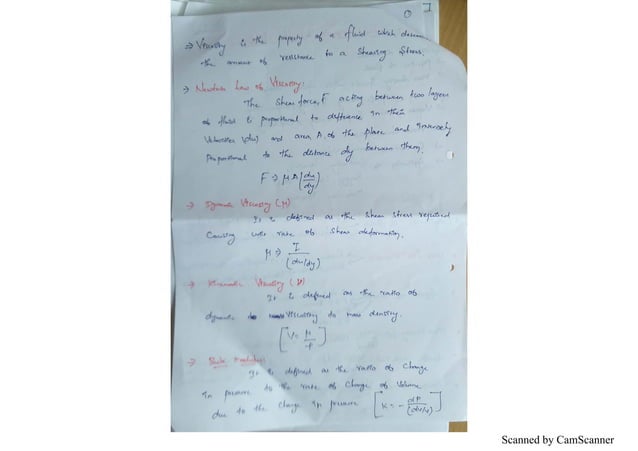 ① I
⇒ Viscosity is the property of a fluid which
the amount of resistance to a shearing stress.
→ Newtons Law of Viscosity:
The shear force, F acting between two layers
of fluid is proportional to difference in their
Velocities (du) and area A of the plane and inversely
proportional to the distance dy between them.
F → μ A (du/dy)
→ Dynamic Viscosity (μ)
It is defined as the shear stress required
Causing rate of shear deformation.
μ → τ/(du/dy)
→ Kinematic Viscosity (ν)
It is defined as the ratio of
dynamic viscosity to mass density.
[ν = μ/ρ]
→ Bulk Modulus
It is defined as the ratio of change
in pressure to the rate of change of volume
due to the change in pressure [K = - dP/(dv/v)]
Scanned by CamScanner